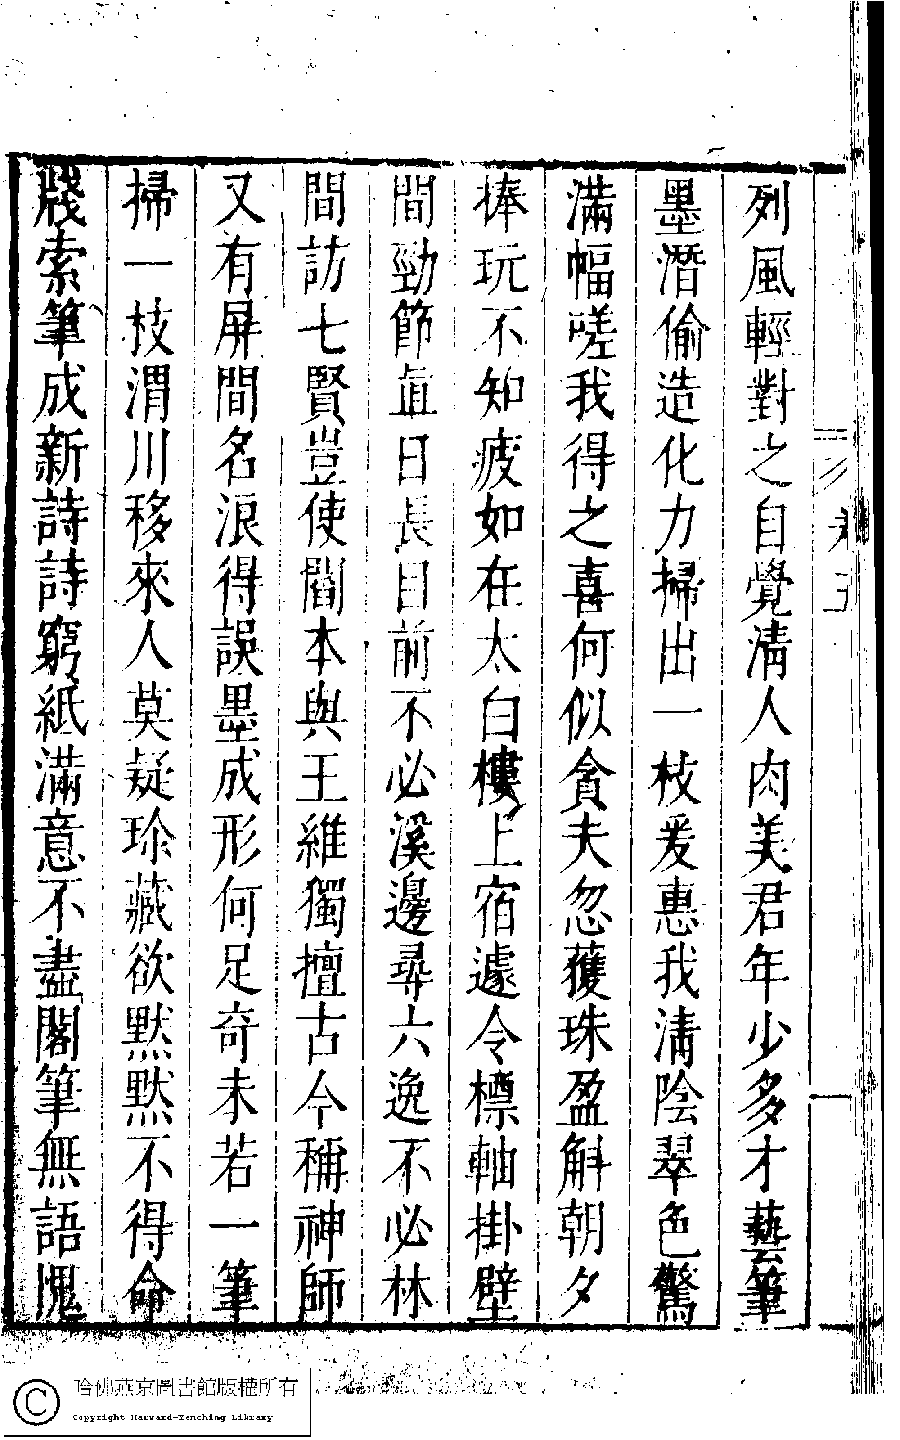 列風輕對之自覺清人肉美君年少多才藝筆
墨潛偷造化力掃出一枝爰惠我清陰翠色驚
滿幅嗟我得之喜何似貪夫忽獲珠盈斛朝夕
捧玩不知疲如在太白樓上宿遽令標軸掛壁
間勁節直日長目前不必溪邊尋六逸不必林
間訪七賢豈使閻本與王維獨擅古今稱神師
又有屏間名浪得誤墨成形何足奇未若一筆
掃一枝渭川移來人莫疑珍藏欲默默不得命
牋索筆成新詩詩窮紙滿意不盡閣筆無語愧
卷五
哈佛燕京圖書館版權所有
Copyright Harvard-Yenching Library